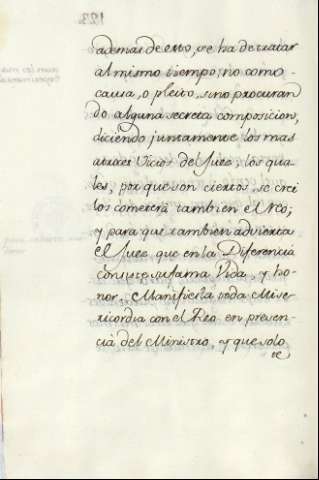 123.
ademas de esto, se ha de tratar
al mismo tiempo, no como
causa, o pleito, sino procuran
do alguna secreta composicion,
diciendo juntamente los mas
atroces Vicios del Juez, los qua
les, por que son ciertos, se cree
los cometerá tambien el Reo;
y para que tambien advierta
el Juez que en la Diferencia
consiste su fama Vida, y ho
nor, Manifiesta toda Mise
ricordia con el Reo en presen
cia del Ministro, y que solo
se